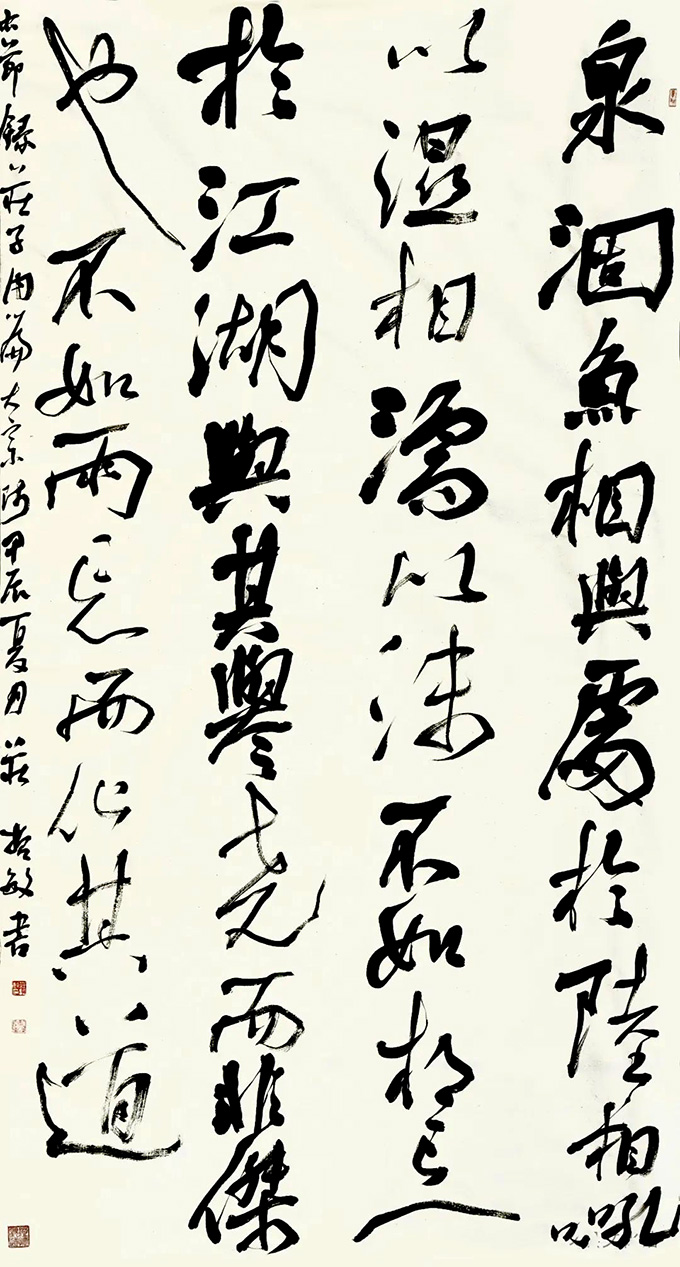 泉涸魚相與處於陸相呴
以濕相濡以沫不如相忘
於江湖與其譽堯而非傑
也不如兩忘而化其道
右節錄莊子內篇大宗師甲辰夏月莊哲敏書